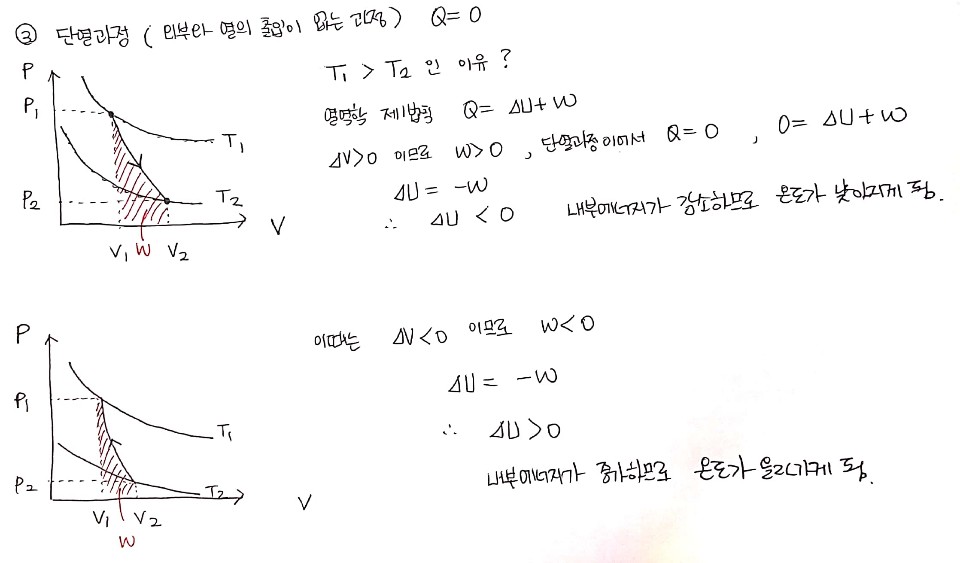 ③ 단열과정 ( 외부와 열의 출입이 없는 과정) Q = 0
P
P₁
T₁
P₂
T₂
V
V₁ W V₂
T₁ > T₂ 인 이유 ?
열역학 제1법칙 Q = ΔU + W
ΔV>0 이므로 W>0 , 단열과정이어서 Q = 0 , 0 = ΔU + W
ΔU = -W
∴ ΔU < 0 내부에너지가 감소하므로 온도가 낮아지게 됨.
P
P₁
T₁
P₂
T₂
V
V₁ V₂
W
이때는 ΔV<0 이므로 W<0
ΔU = -W
∴ ΔU >0
내부에너지가 증가하므로 온도가 올라가게 됨.